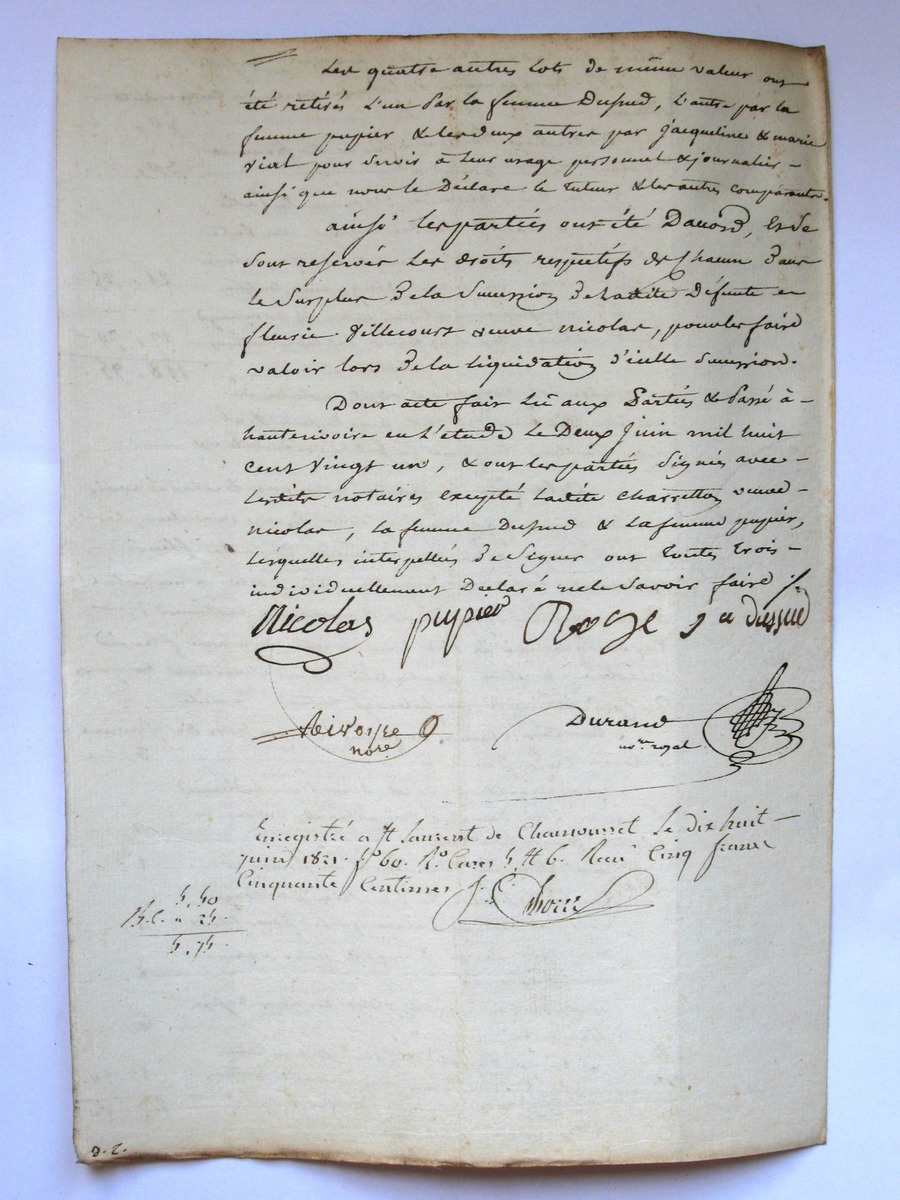 Les quatre autres lots de même valeur ont
été retirés l'un par la femme Dupud, l'autre par la
femme pupier & les deux autres par jacqueline & marie
vial pour servir à leur usage personnel & journalier -
ainsi que nous le Déclare le tuteur & les autres comparants.
ainsi les parties ont été Daccord, Et se
sont reservés les droits respectifs de chacun dans
le surplus de la succession de ladite Défunte
fleurie Villecourt veuve nicolas, pour les faire
valoir lors de la liquidation d'icelle succession.
Dont acte fait lu aux Parties & Passé à -
hauterivoire en l'étude le Deux juin mil huit
cent vingt un, & ont les parties signés avec -
lesdits notaires excepté ladite charretton veuve -
nicolas, la femme Dupud & la femme pupier,
lesquelles interpellées de signer ont toutes trois -
individuellement Déclaré ne le savoir faire ./.
Nicolas pupier
Durand
nore
nore royal
Enregistré a St laurent de Chamousset le dix huit -
juin 1821. fo 60. Ro Cases 5 & 6. Recu Cinq francs
Cinquante Centimes
5,50
25
5,75